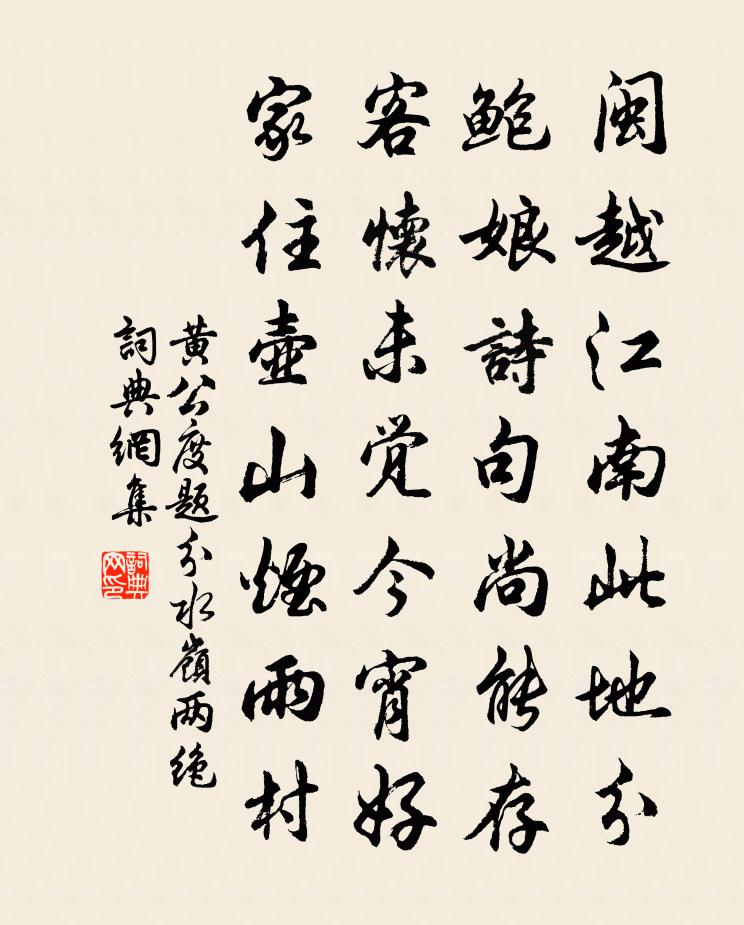 闽越江南此地分
鲍娘詩句尚能存
客懷未觉今宵好
家住壶山煙雨村
黄公度题分水嶺两绝
詞典網集
詞典网印